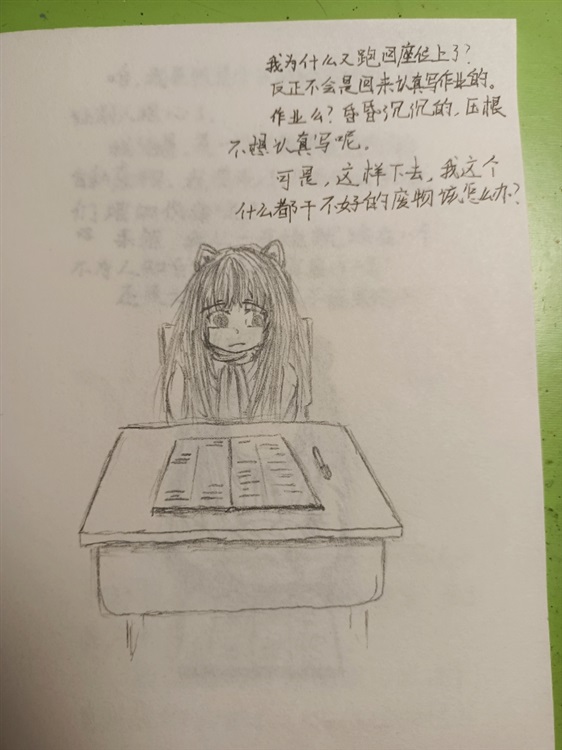 我为什么又跑回座位上了?
反正不会是回来认真写作业的。
作业么?昏昏沉沉的,压根
不想认真写呢。
可是,这样下去,我这个
什么都干不好的废物该怎么办?